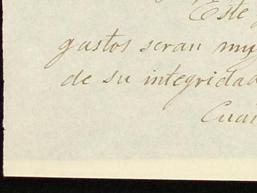 Este
gastos seran
de su integridad
Cuan